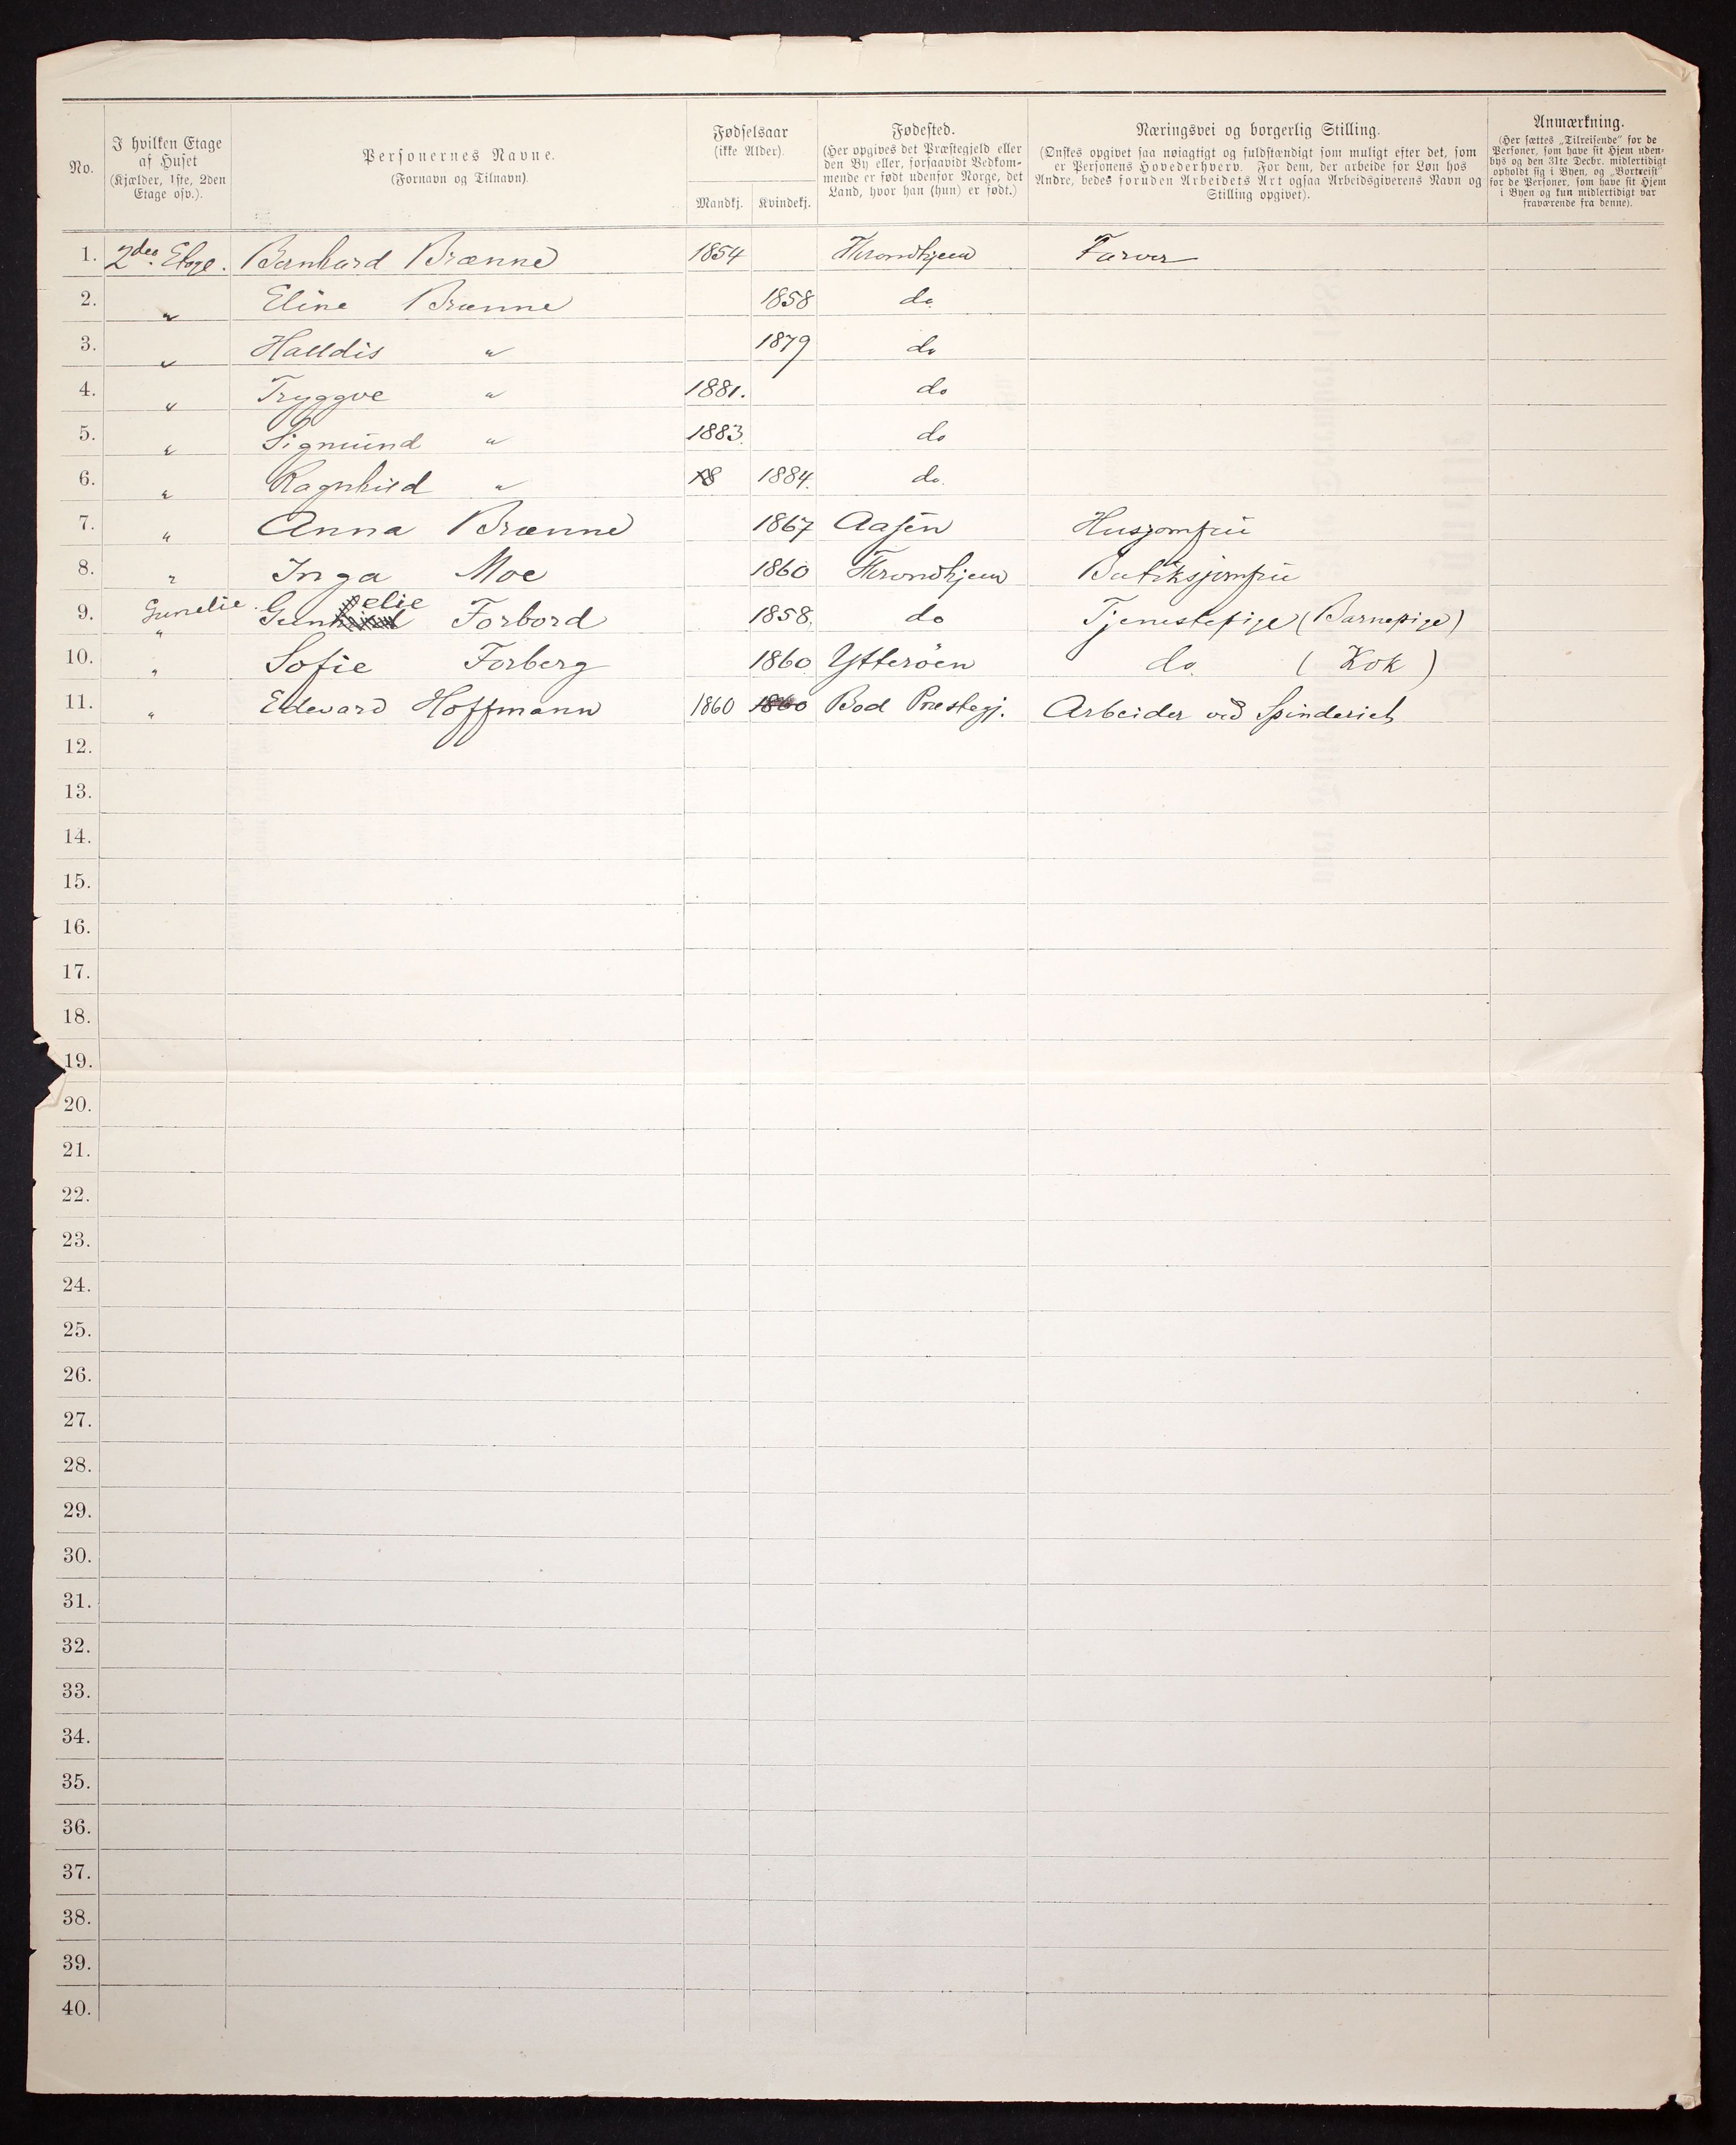 No.
I hvilken Etage
af Huset
(Kjælder, 1ste, 2den
Etage osv.).
Personernes Navne.
(Fornavn og Tilnavn).
Fødselsaar
(ikke Alder).
Mandkj.
Kvindekj.
Fødested.
(Her opgives det Præstegjeld eller
den By eller, forsaavidt Vedkom-
mende er født udenfor Norge, det
Land, hvor han (hun) er født.)
Næringsvei og borgerlig Stilling.
(Ønskes opgivet saa nøiagtigt og fuldstændigt som muligt efter det, som
er Personens Hovederhverv. For dem, der arbeide for Løn hos
Andre, bedes foruden Arbeidets Art ogsaa Arbeidsgiverens Navn og
Stilling opgivet).
Anmærkning.
(Her sættes „Tilreisende" for de
Personer, som have sit Hjem uden-
bys og den 31te Decbr. midlertidigt
opholdt sig i Byen, og „Bortreist"
for de Personer, som have sit Hjem
i Byen og kun midlertidigt var
fraværende fra denne).
1. 2den Etage. Bernhard Brænne 1854 Throndhjem Farver
2. " Eline Brænne 1858 do.
3. " Halldis " 1879 do
4. " Tryggve " 1881. do
5. " Sigmund " 1883. do
6. " Ragnhild " 18 1884. do.
7. " Anna Brænne 1867 Aasen Husjomfru
8. " Inga Moe 1860 Throndhjem Butiksjomfru
9. Gunelie. " Gunelie Forbord 1858. do Tjenestepige (Barnepige)
10. " Sofie Forberg 1860 Ytteröen do. (Kok)
11. " Edevard Hoffmann 1860 1860 Bod Prestegj. Arbeider ved Spinderiet
12.
13.
14.
15.
16.
17.
18.
19.
20.
21.
22.
23.
24.
25.
26.
27.
28.
29.
30.
31.
32.
33.
34.
35.
36.
37.
38.
39.
40.